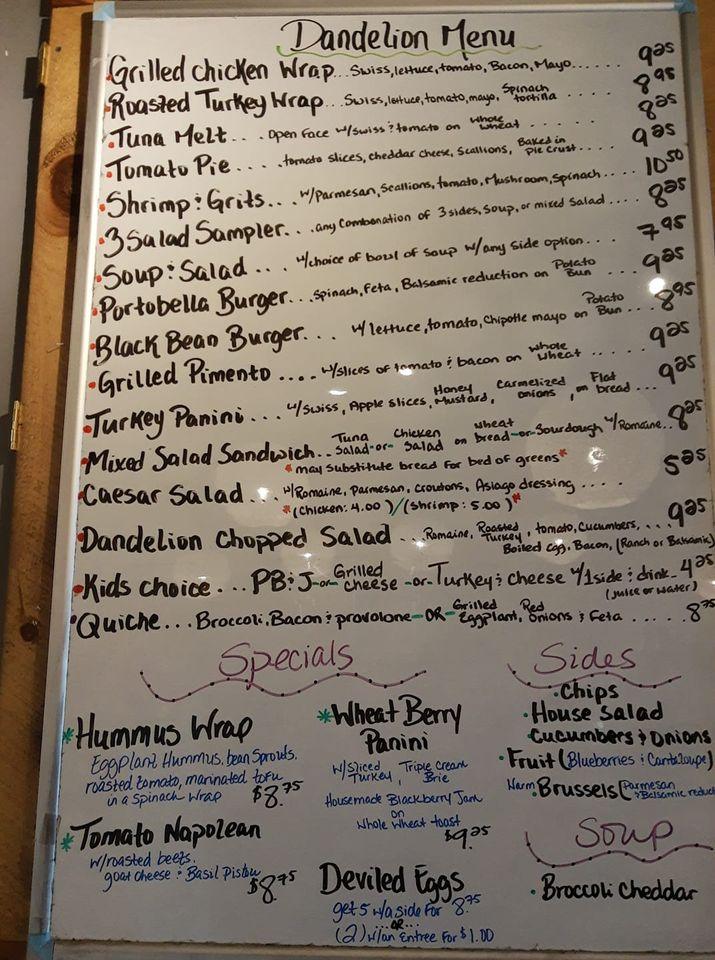 Dandelion Menu
Grilled chicken Wrap...Swiss, lettuce, tomato, Bacon, Mayo...... 9.25
Roasted Turkey Wrap...Swiss, lettuce, tomato, mayo, Spinach tortilla .... 8.95
Tuna Melt... Open Face w/swiss & tomato on whole wheat ...... 8.25
Tomato Pie.... .tomato slices, cheddar cheese, Scallions, Baked in Pie Crust.... 9.25
Shrimp & Grits... w/Parmesan, Scallions, tomato, Mushroom, Spinach.... 10.50
3 Salad Sampler...any Combonation of 3 sides, Soup, or mixed Salad.... 8.25
Soup & Salad ... w/choice of bowl of soup w/any side option... 7.95
Portobella Burger...Spinach, Feta, Balsamic reduction on Potato Bun ... 9.25
Black Bean Burger... w/lettuce, tomato, Chipotle mayo on Potato Bun... 8.95
Grilled Pimento .... w/slices of tomato & bacon on whole wheat ..... 9.25
Turkey Panini... w/Swiss, Apple slices, Honey Mustard, Carmelized onions, on Flat bread... 9.25
Mixed Salad Sandwich.. Tuna Salad -or- Chicken Salad on wheat bread -or- Sourdough w/Romaine.. 8.25
*may substitute bread for bed of greens*
Caesar Salad... w/Romaine, Parmesan, croutons, Asiago dressing .... 5.25
*(Chicken: 4.00)/(Shrimp: 5.00)*
Dandelion Chopped Salad ...Romaine, Roasted Turkey, tomato, Cucumbers, ... 9.25
Boiled Egg, Bacon, (Ranch or Balsamic)
Kids choice... PB & J -or- Grilled cheese -or- Turkey & cheese w/1side & drink.. 4.25
(juice or water)
Quiche... Broccoli, Bacon & provolone -OR- Grilled Eggplant, Red Onions & Feta ..... 8.75
Specials
*Hummus Wrap
Eggplant Hummus, bean Sprouts,
roasted tomato, marinated tofu
in a Spinach Wrap $8.75
*Tomato Napolean
w/roasted beets,
goat cheese & Basil Pistou $8.75
*Wheat Berry
Panini
w/Sliced Turkey, Triple Cream Brie
Housemade Blackberry Jam
on
Whole Wheat toast
$9.25
Deviled Eggs
get 5 w/a side for 8.75
...OR...
(2) w/an Entree For $1.00
Sides
Chips
House Salad
Cucumbers & Onions
Fruit (Blueberries & Cantaloupe)
Warm Brussels (Parmesan
& Balsamic
Soup
Broccoli Cheddar